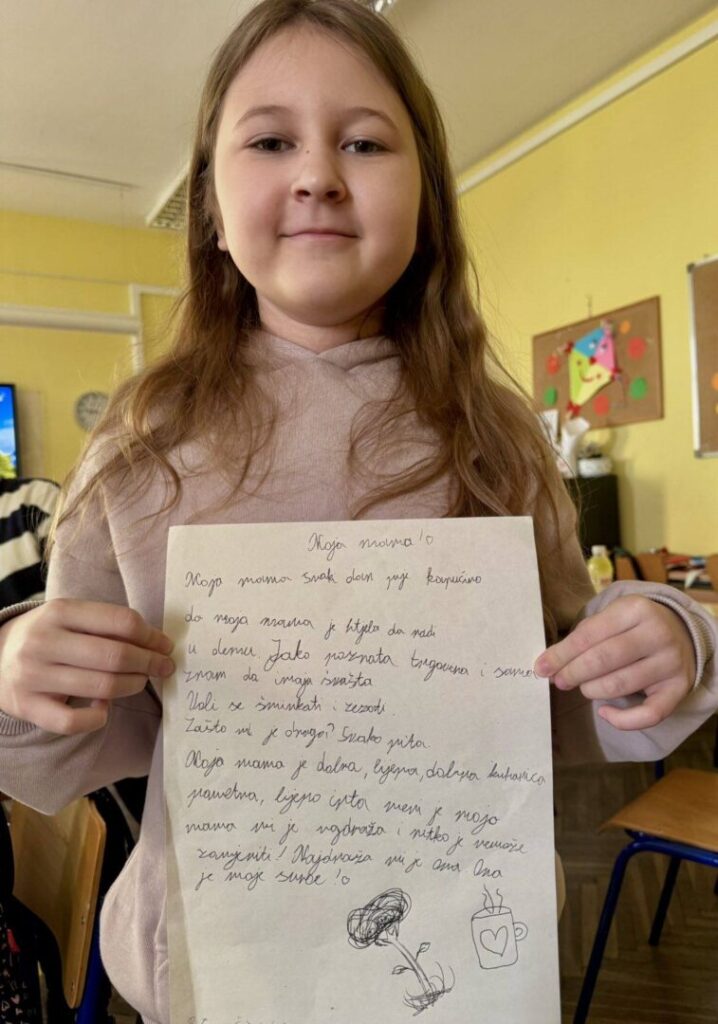 Moja mama!
Moja mama svak dan pije kapučino
da moja mama je htjela da radi
u demu. Jako poznata trgovina i samo
znam da imaja švašta
Voli se šminkati i zezati.
Zašto mi je draga? Svako pita.
Moja mama je dobra, lijepa, dobra kuharica
pametna, lijepo meni je moja
mama mi je najdraža i nitko je nemože
zamjeniti! Najdraža mi je ona. Ona
je moje sunce!